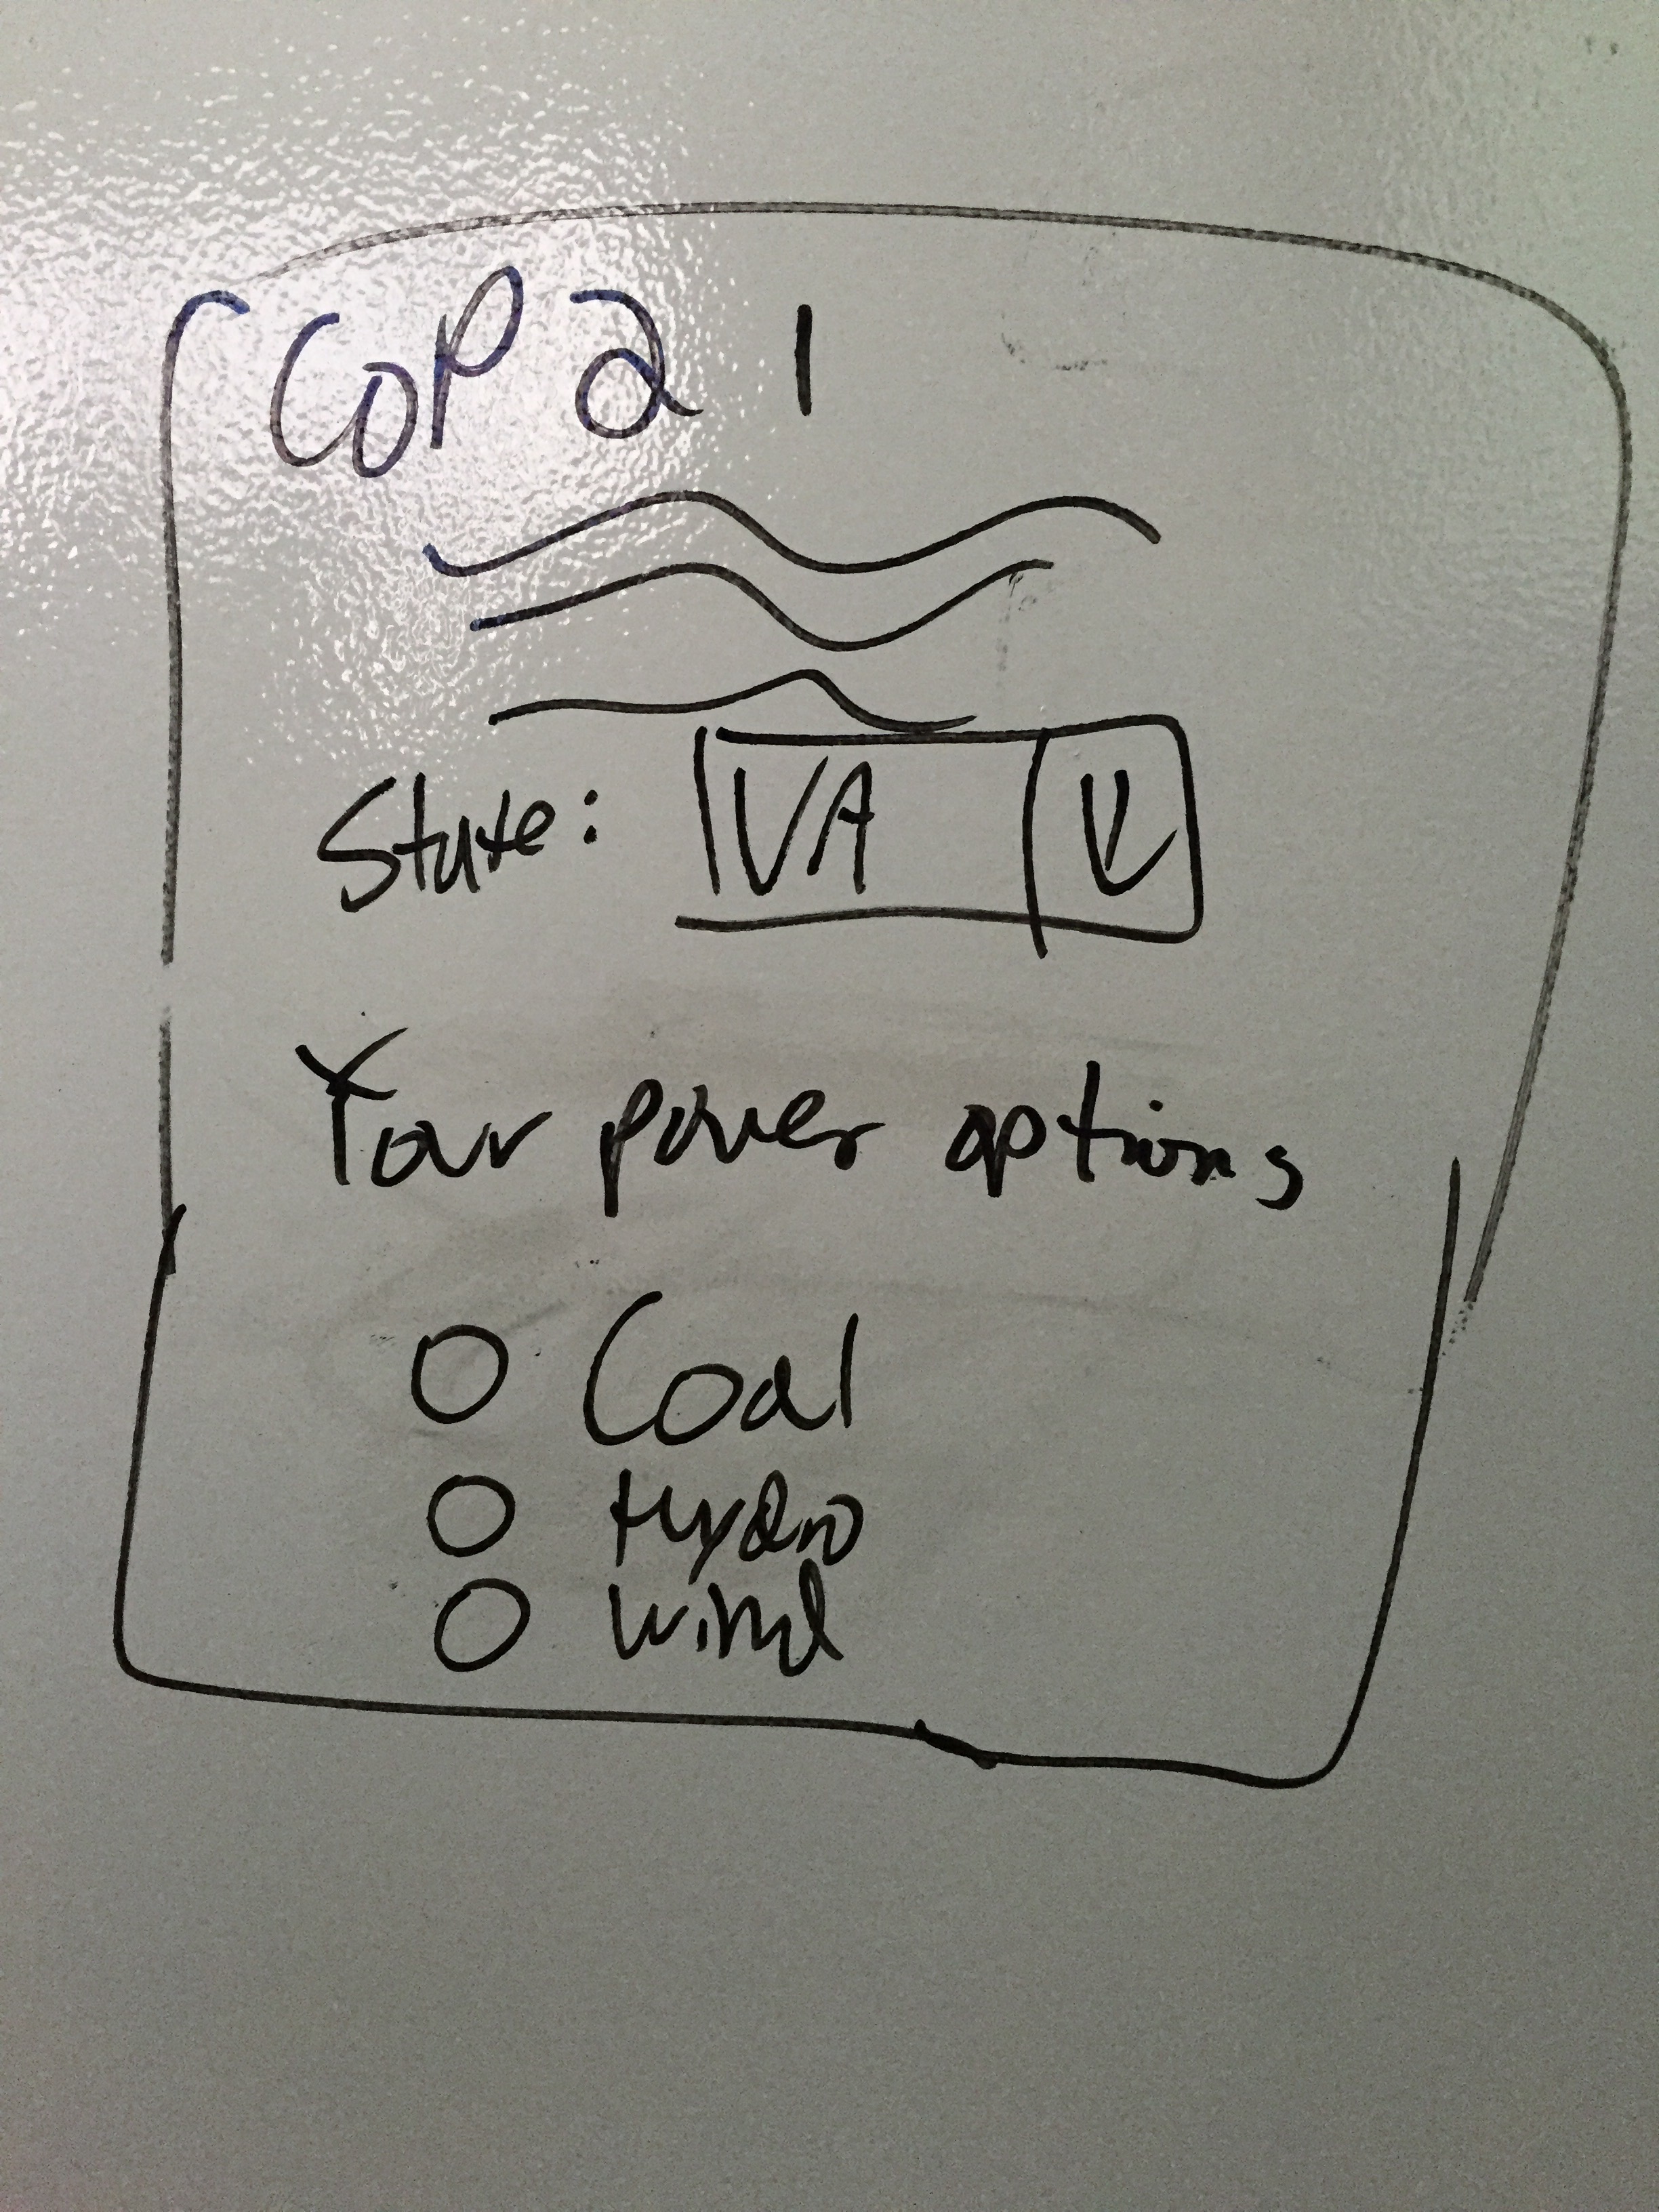 COP 21
State: VA
Your power options
Coal
Hydro
Wind